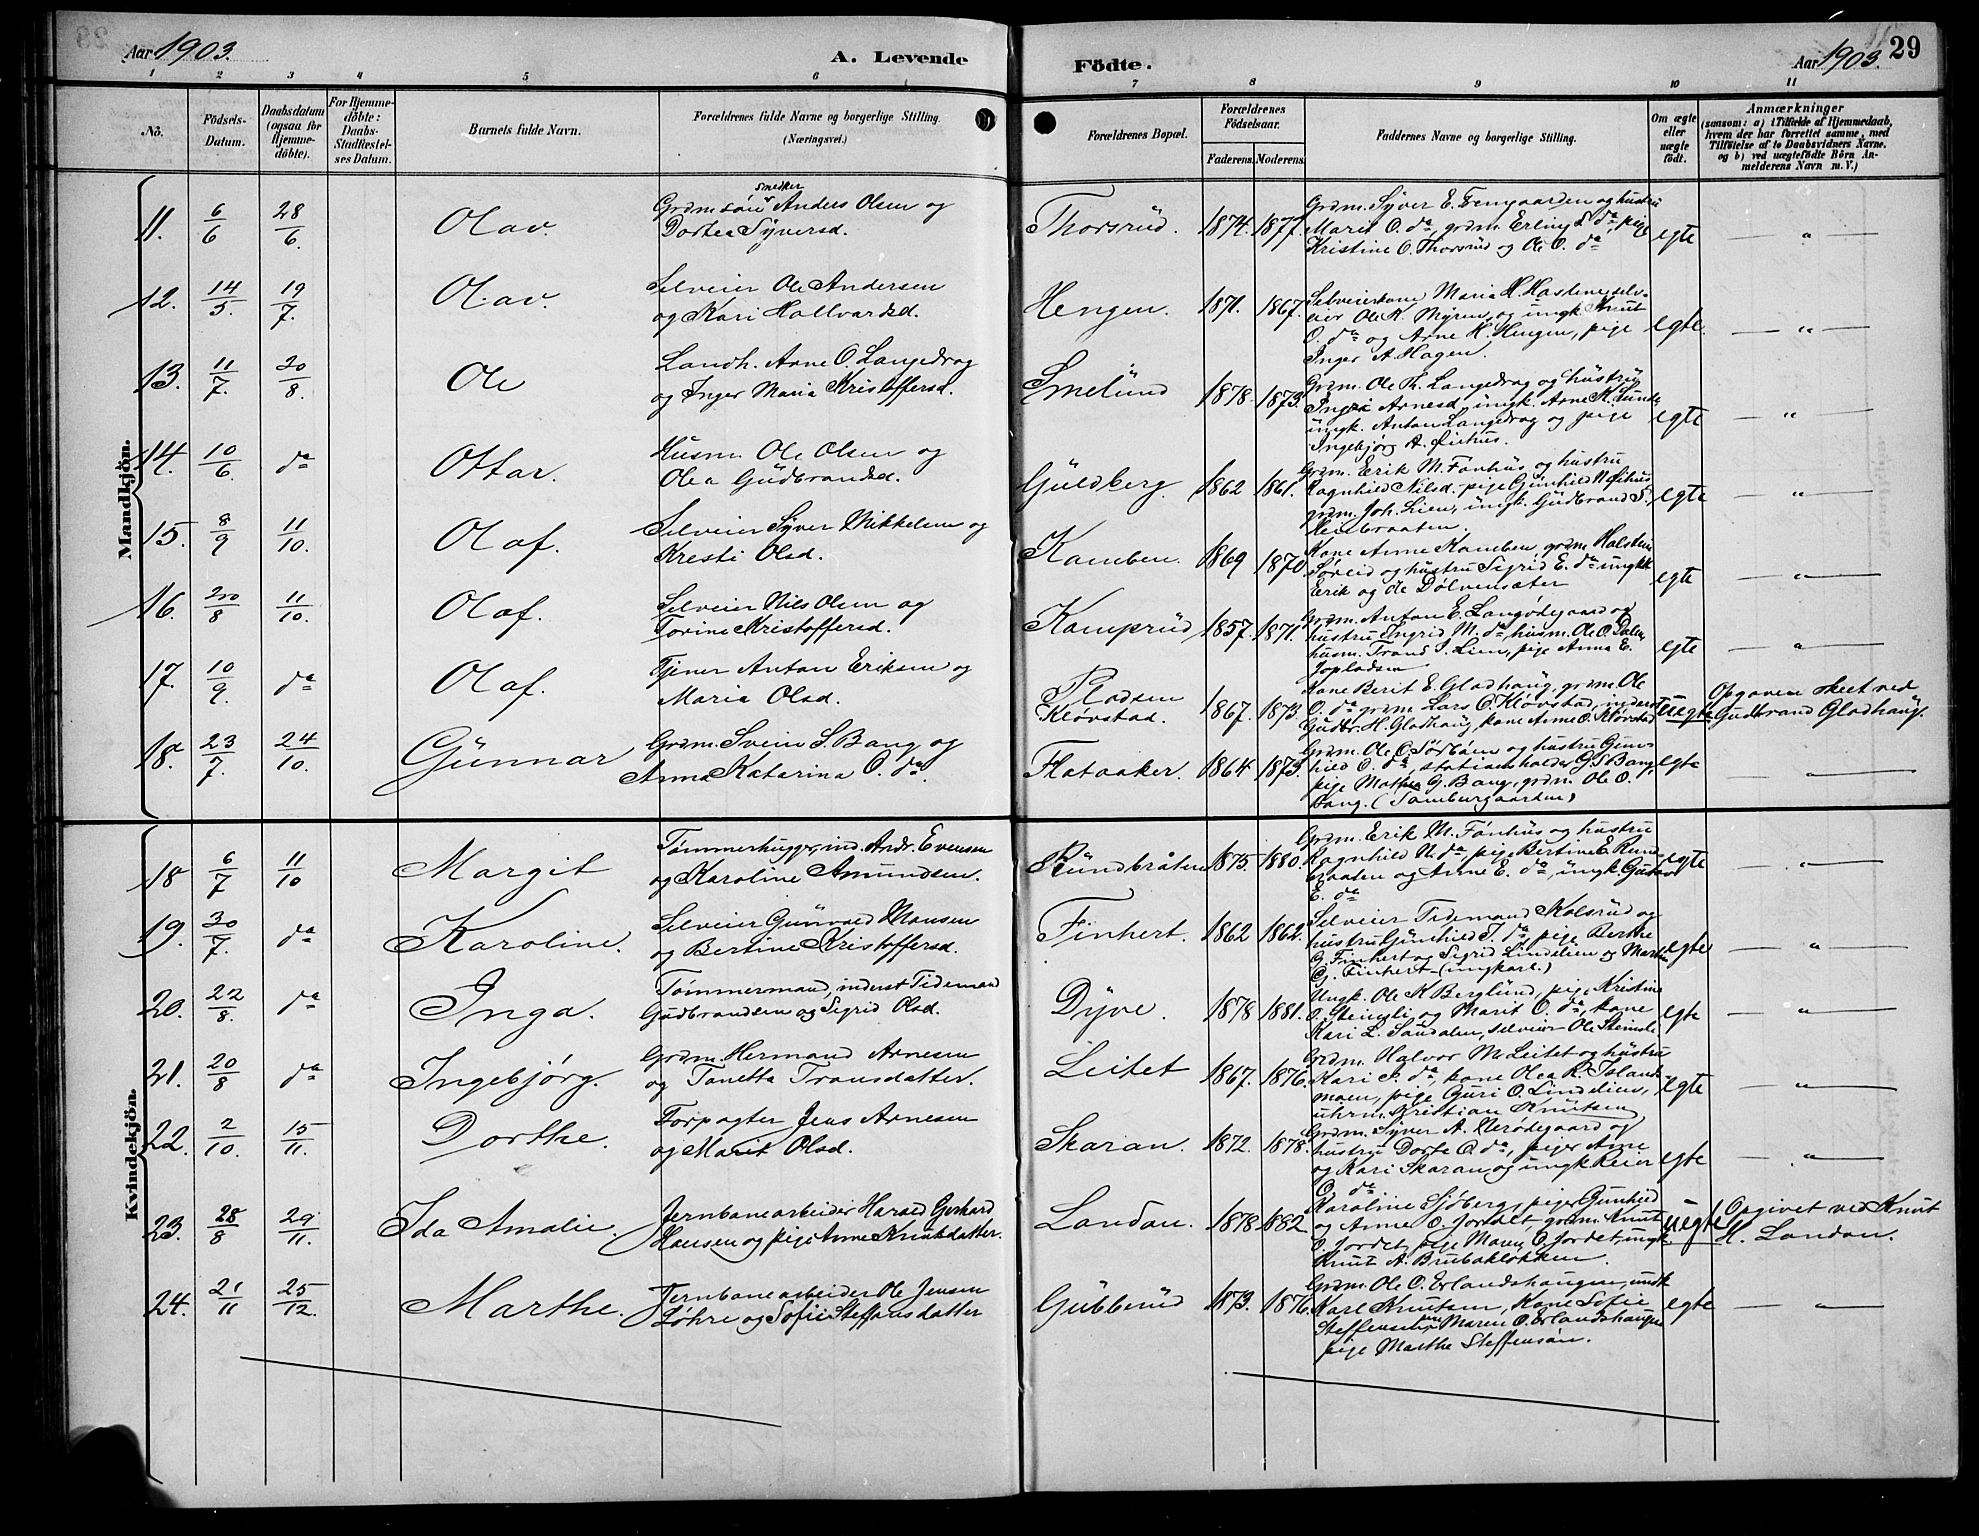 Aar 1903.
A. Levende Födte.
Aar 1903. 29
1 2 3 4 5 6 7 8 9 10 11
No.
Födsels-Datum.
Daabsdatum (ogsaa for Hjemme-döbte).
For Hjemme-döbte: Daabs-Stadfæstel-ses Datum.
Barnets fulde Navn.
Forældrenes fulde Navne og borgerlige Stilling. (Næringsvei.)
Forældrenes Bopæl.
Forældrenes Födselsaar.
Faderens. Moderens.
Faddernes Navne og borgerlige Stilling.
Om ægte eller uægte födt.
Anmærkninger
(saasom: a) i Tilfælde af Hjemmedaab, hvem der har forrettet samme, med Tilföielse af to Daabsvidners Navne. og b) ved uægtefödte Börn An-melderens Navn m. V.)
Mandkjön.
11. 6/6 28/6. Olav. Grdmsøn smedker Anders Olsen og
Dortea Syversd. Thorsrud. 1874. 1877. Grdm. Syver E. Fengaarden og hustru
Marit O. da, grdm. Erling S. da, pige
Kristine O. Thorsrud og Ole O. da egte — „ —
12. 14/5. 19/7. Olav. Selveier Ole Andersen
og Kari Hallvardsd. Hengen. 1871. 1867. Selveierkone Maria H. Hastene, selv-
eier Ole K. Myren, og ungk. Knut
O. da og Arne H. Hengen, pige
Inger A. Hagen. egte. — „ —
13. 11/7. 20/8. Ole Landh. Arne O. Langedrag
og Inger Maria Kristoffersd. Smelund 1878. 1873. Grdm. Ole Th. Langedrag og hustru
Arnesd, ungk. Arne K. Lunde
ungk. Anton Langedrag og pige
Ingebjørg A. egte — „ —
14. 10/6. da Ottar. Husm. Ole Olsen og
Olea Gudbrandsd. Guldberg. 1862 1861. Grdm. Erik M. Fønhus og hustru
Ragnhild Nilsd. pige Gunhild N.
grdm. Joh. Lien, ungk. Gudbrand S.
egte — „ —
15. 8/9 11/10. Olaf. Selveier Syver Mikkelsen og
Kresti Olsd. Kamben. 1869 1870. Kone Anne Kamben, grdm. Halstein
Sørlid og hustru Sigrid E. da ungkk
Erik og Ole Dølvensæter egte — „ —
16. 20/8 11/10. Olaf. Selveier Nils Olsen og
Torine Kristoffersd. Kamprud 1857. 1871. Grdm. Anton E. Langødegaard og
hustru Ingrid M. da, husm. Ole O. Dalen,
husm. Trond S. Lien, pige Anna E.
egte — „ —
17. 10/9. da Olaf. Tjener Anton Eriksen og
Maria Olsd. Pladsen
Kløvstad. 1867. 1873. Kone Berit E. Gladhaug, grdm. Ole
O. da grdm. Lars O. Kløvstad, inderst
Gudbr. H. Gladhaug, kone Anne O. Kløvstad uegte Opgaven skeet ved
Gudbrand Gladhaug.
18a. 23/7. 24/10. Gunnar Grdm. Svein S. Bang og
Anna Katarina O. da. Flataaker. 1864 1873. Grdm. Ole O. Sørbøen og hustru Gun-
hild O. da, stationsholder G. S. Bang,
pige Mathea G. Bang, grdm. Ole O.
Bang. egte — „ —
Kvindekjön.
18 6/7 11/10 Margit Tømmerhugger, ind. Andr. Evensen
og Karoline Amundsen. Rundbråten 1875. 1880. Grdm. Erik M. Fønhus og hustru
Ragnhild N. da, pige Bertine E. Rund-
braaten og Anne E. da, ungk. Gustav
E. da egte — „ —
19. 30/7. da Karoline. Selveier Gunvald Monsen
og Bertine Kristoffersd. Finhert. 1862 1862. Selveier Tidemand Kolsrud og
hustru Gunhild T. da, pige Berthe
G. Finhert og Sigrid Lindelien og Martin
G. Finhert (ungkarl.) egte — „ —
20. 22/8. da Inga. Tømmermand, inderst Tidemand
Gudbrandsen og Sigrid Olsd. Dyve. 1878 1881. Ungk. Ole K. Berglund, pige Kristine
O. Steinsli og Marit O. da, kone
Kari L. Sandalen, selveier Ole Steinsli egte — „ —
21. 20/8 da Ingebjørg. Grdm. Hermand Arnesen
og Tanetta Transdatter. Leitet 1867. 1876. Grdm. Halvor M. Leitet og hustru
Kari da, kone Olea R. Island-
moen, pige Guri O. Lindelien,
uhrm. Kristian Knutsen egte — „ —
22. 2/10. 15/11. Dorthe. Forpagter Jens Arnesen
og Marit Olsd. Skaran. 1872. 1878. Grdm. Syver A. Nerødegaard og
hustru Dorte O. da, piger Anne
og Kari Skaran, og ungk Reier
O. da egte — „ —
23. 28/8 29/11. Ida Amalie. Jernbanearbeider Harald Gerhard
Hansen og pige Anne Knutsdatter. Landan. 1878. 1882 Karoline Sjøberg, piger Gunhild
og Anne O. Jordet, grdm. Knut
O. Jordet, pige Maren O. Jordet, ungk.
Knut A. Brubakløkken. uegte Opgivet ved Knut
H. Landan.
24. 21/11 25/12. Marthe. Jernbanearbeider Ole Jensen
Løhre og Sofie Steffensdatter Gubberud 1873. 1876. Grdm. Ole O. Erlandshaugen, ungk
Karl Knutsen, Kone Sofie
Steffensen, Maren O. Erlandshaugen
pige Marthe Steffensøn. egte — „ —